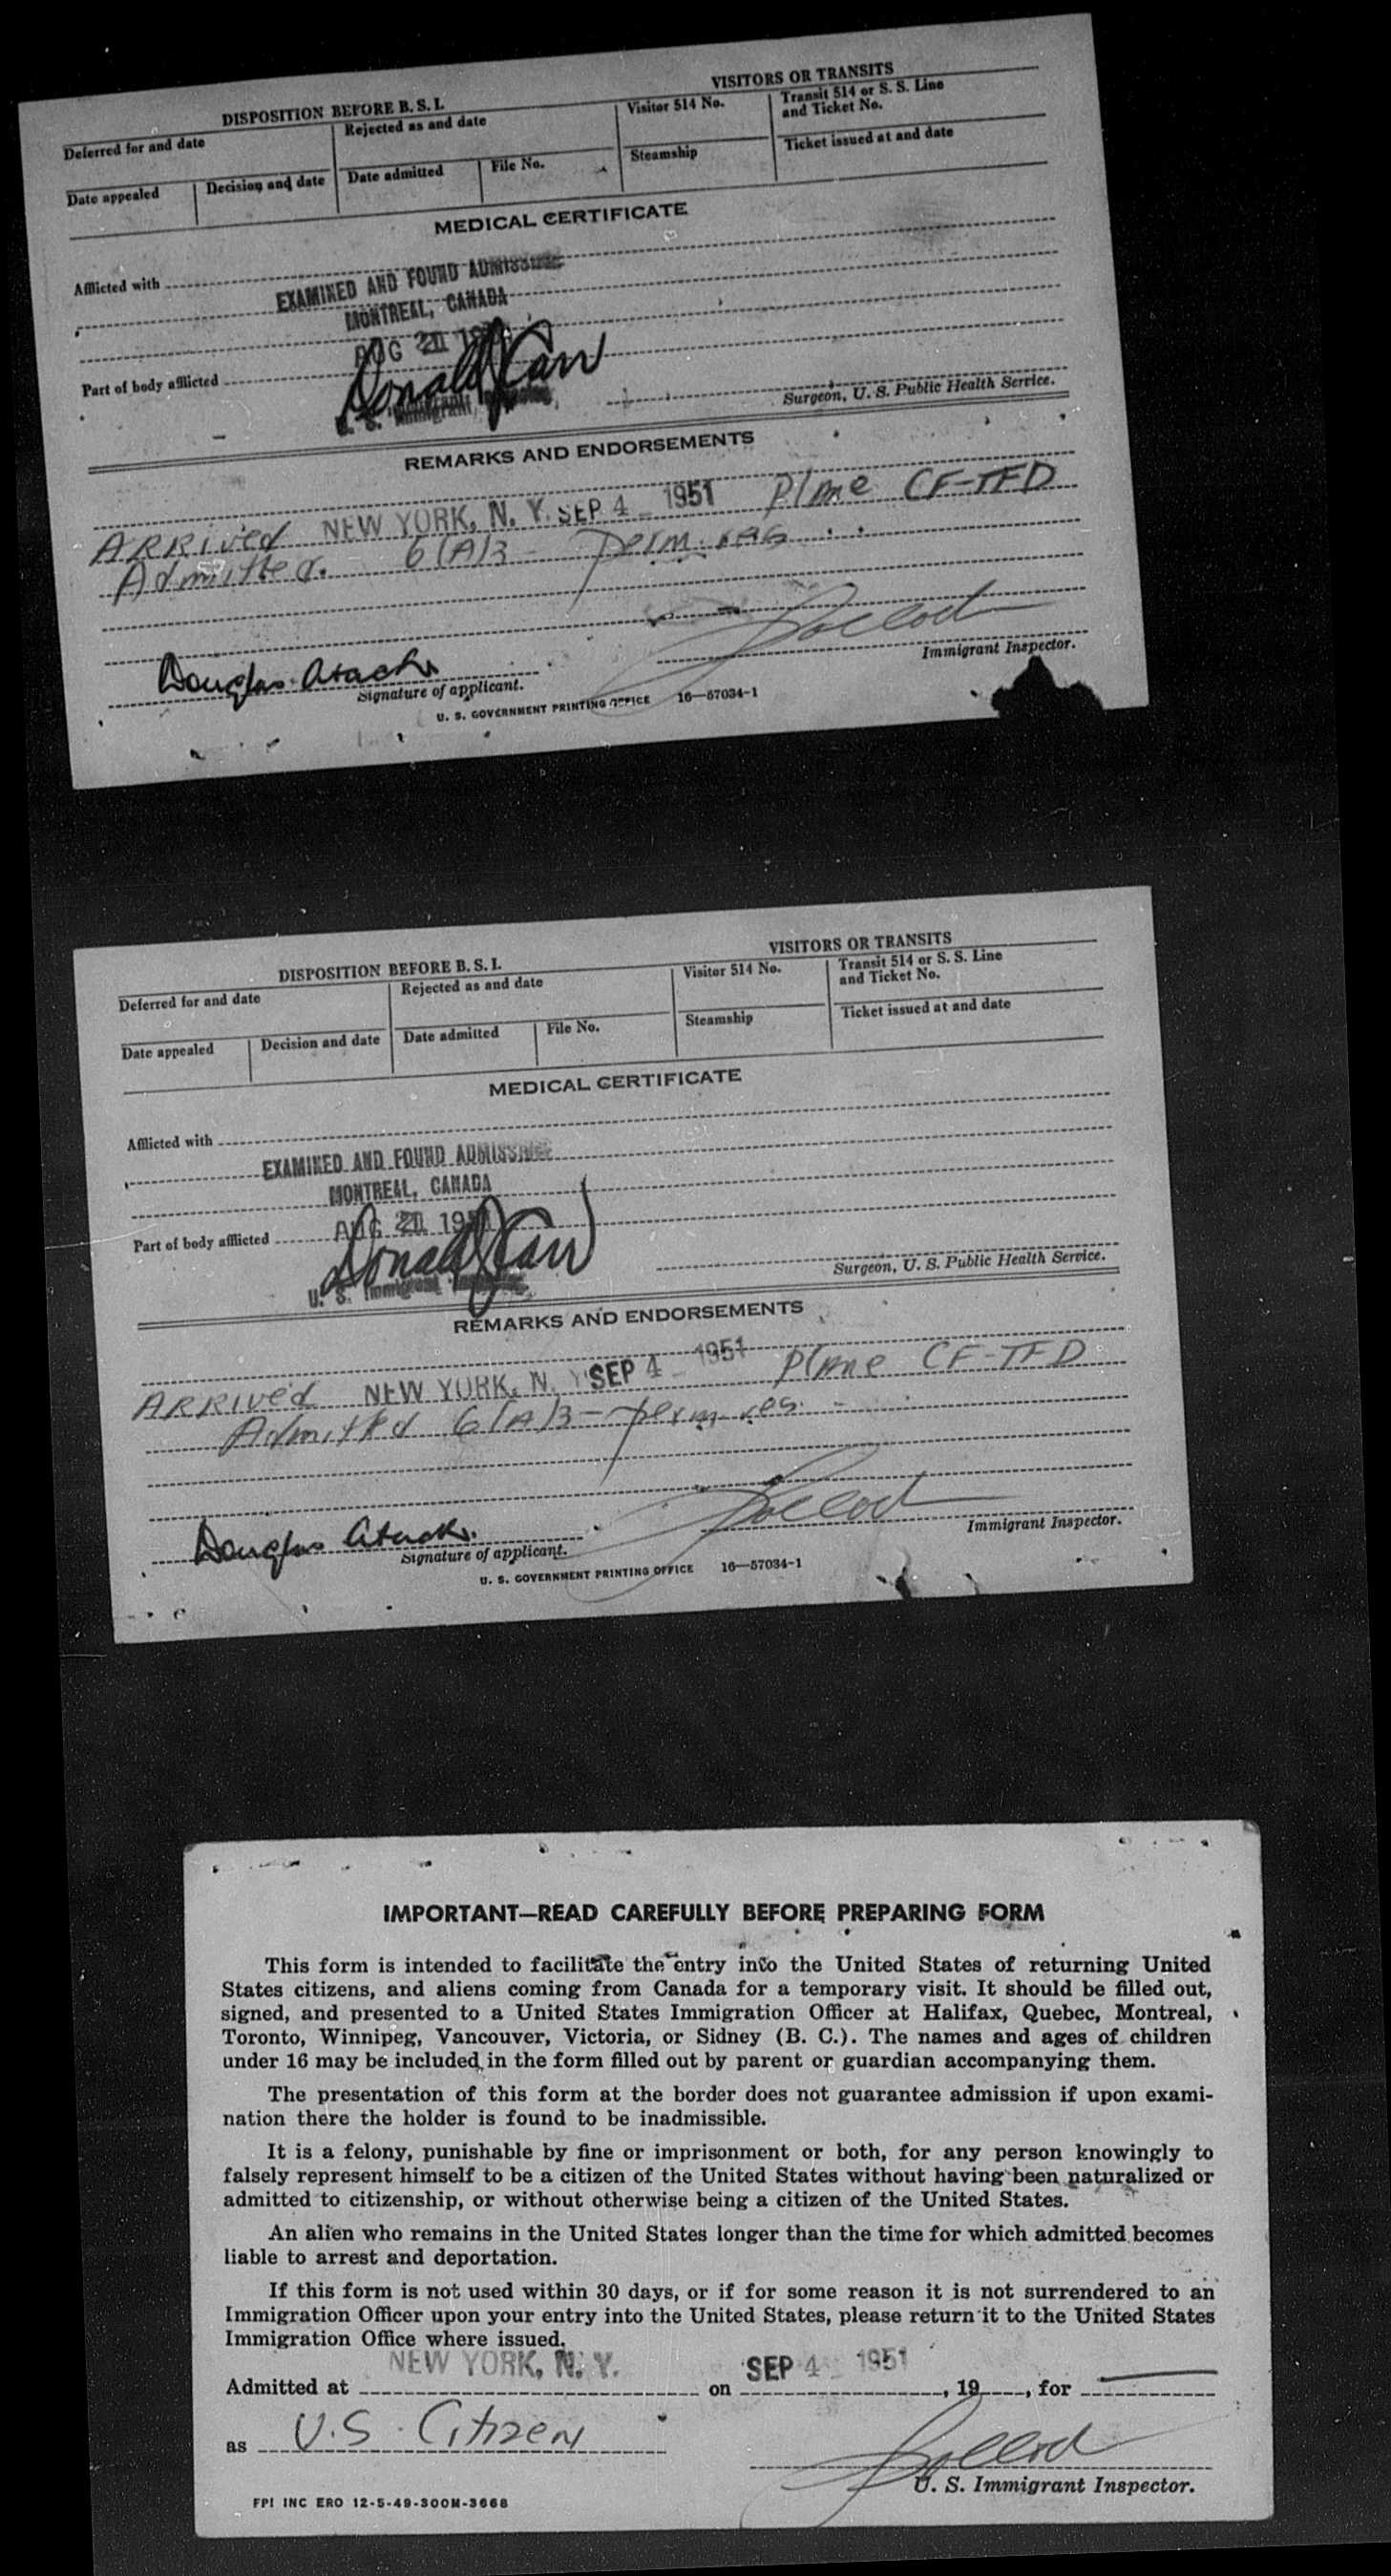 DISPOSITION BEFORE B. S. I.
VISITORS OR TRANSITS
Deferred for and date
Rejected as and date
Visitor 514 No.
Transit 514 or S. S. Line and Ticket No.
Date appealed
Decision and date
Date admitted
File No.
Steamship
Ticket issued at and date
MEDICAL CERTIFICATE
Afflicted with
EXAMINED AND FOUND ADMISSIBLE
MONTREAL, CANADA
AUG 21
Part of body afflicted
Donald J Carr
U. S. Immigrant
Surgeon, U. S. Public Health Service.
REMARKS AND ENDORSEMENTS
ARRived NEW YORK, N. Y. SEP 4 1951 Plane CF-TFD
Admitted. 6(A)3 - perm. res.
Immigrant Inspector.
Douglas Atack
Signature of applicant.
U. S. GOVERNMENT PRINTING OFFICE 16—57034-1
DISPOSITION BEFORE B. S. I.
VISITORS OR TRANSITS
Deferred for and date
Rejected as and date
Visitor 514 No.
Transit 514 or S. S. Line and Ticket No.
Date appealed
Decision and date
Date admitted
File No.
Steamship
Ticket issued at and date
MEDICAL CERTIFICATE
Afflicted with
EXAMINED AND FOUND ADMISSIBLE
MONTREAL, CANADA
AUG 21 1951
Part of body afflicted
Donald J Carr
U. S. Immigrant
Surgeon, U. S. Public Health Service.
REMARKS AND ENDORSEMENTS
ARRived NEW YORK, N. Y. SEP 4 1951 Plane CF-TFD
Admitted 6(A)3 - perm res.
Immigrant Inspector.
Douglas Atack
Signature of applicant.
U. S. GOVERNMENT PRINTING OFFICE 16—57034-1
IMPORTANT—READ CAREFULLY BEFORE PREPARING FORM
This form is intended to facilitate the entry into the United States of returning United
States citizens, and aliens coming from Canada for a temporary visit. It should be filled out,
signed, and presented to a United States Immigration Officer at Halifax, Quebec, Montreal,
Toronto, Winnipeg, Vancouver, Victoria, or Sidney (B. C.). The names and ages of children
under 16 may be included in the form filled out by parent or guardian accompanying them.
The presentation of this form at the border does not guarantee admission if upon exami-
nation there the holder is found to be inadmissible.
It is a felony, punishable by fine or imprisonment or both, for any person knowingly to
falsely represent himself to be a citizen of the United States without having been naturalized or
admitted to citizenship, or without otherwise being a citizen of the United States.
An alien who remains in the United States longer than the time for which admitted becomes
liable to arrest and deportation.
If this form is not used within 30 days, or if for some reason it is not surrendered to an
Immigration Officer upon your entry into the United States, please return it to the United States
Immigration Office where issued.
Admitted at NEW YORK, N. Y. on SEP 4 1951, 19, for
as U.S. Citizen
U. S. Immigrant Inspector.
FPI INC ERO 12-5-49-300M-3668